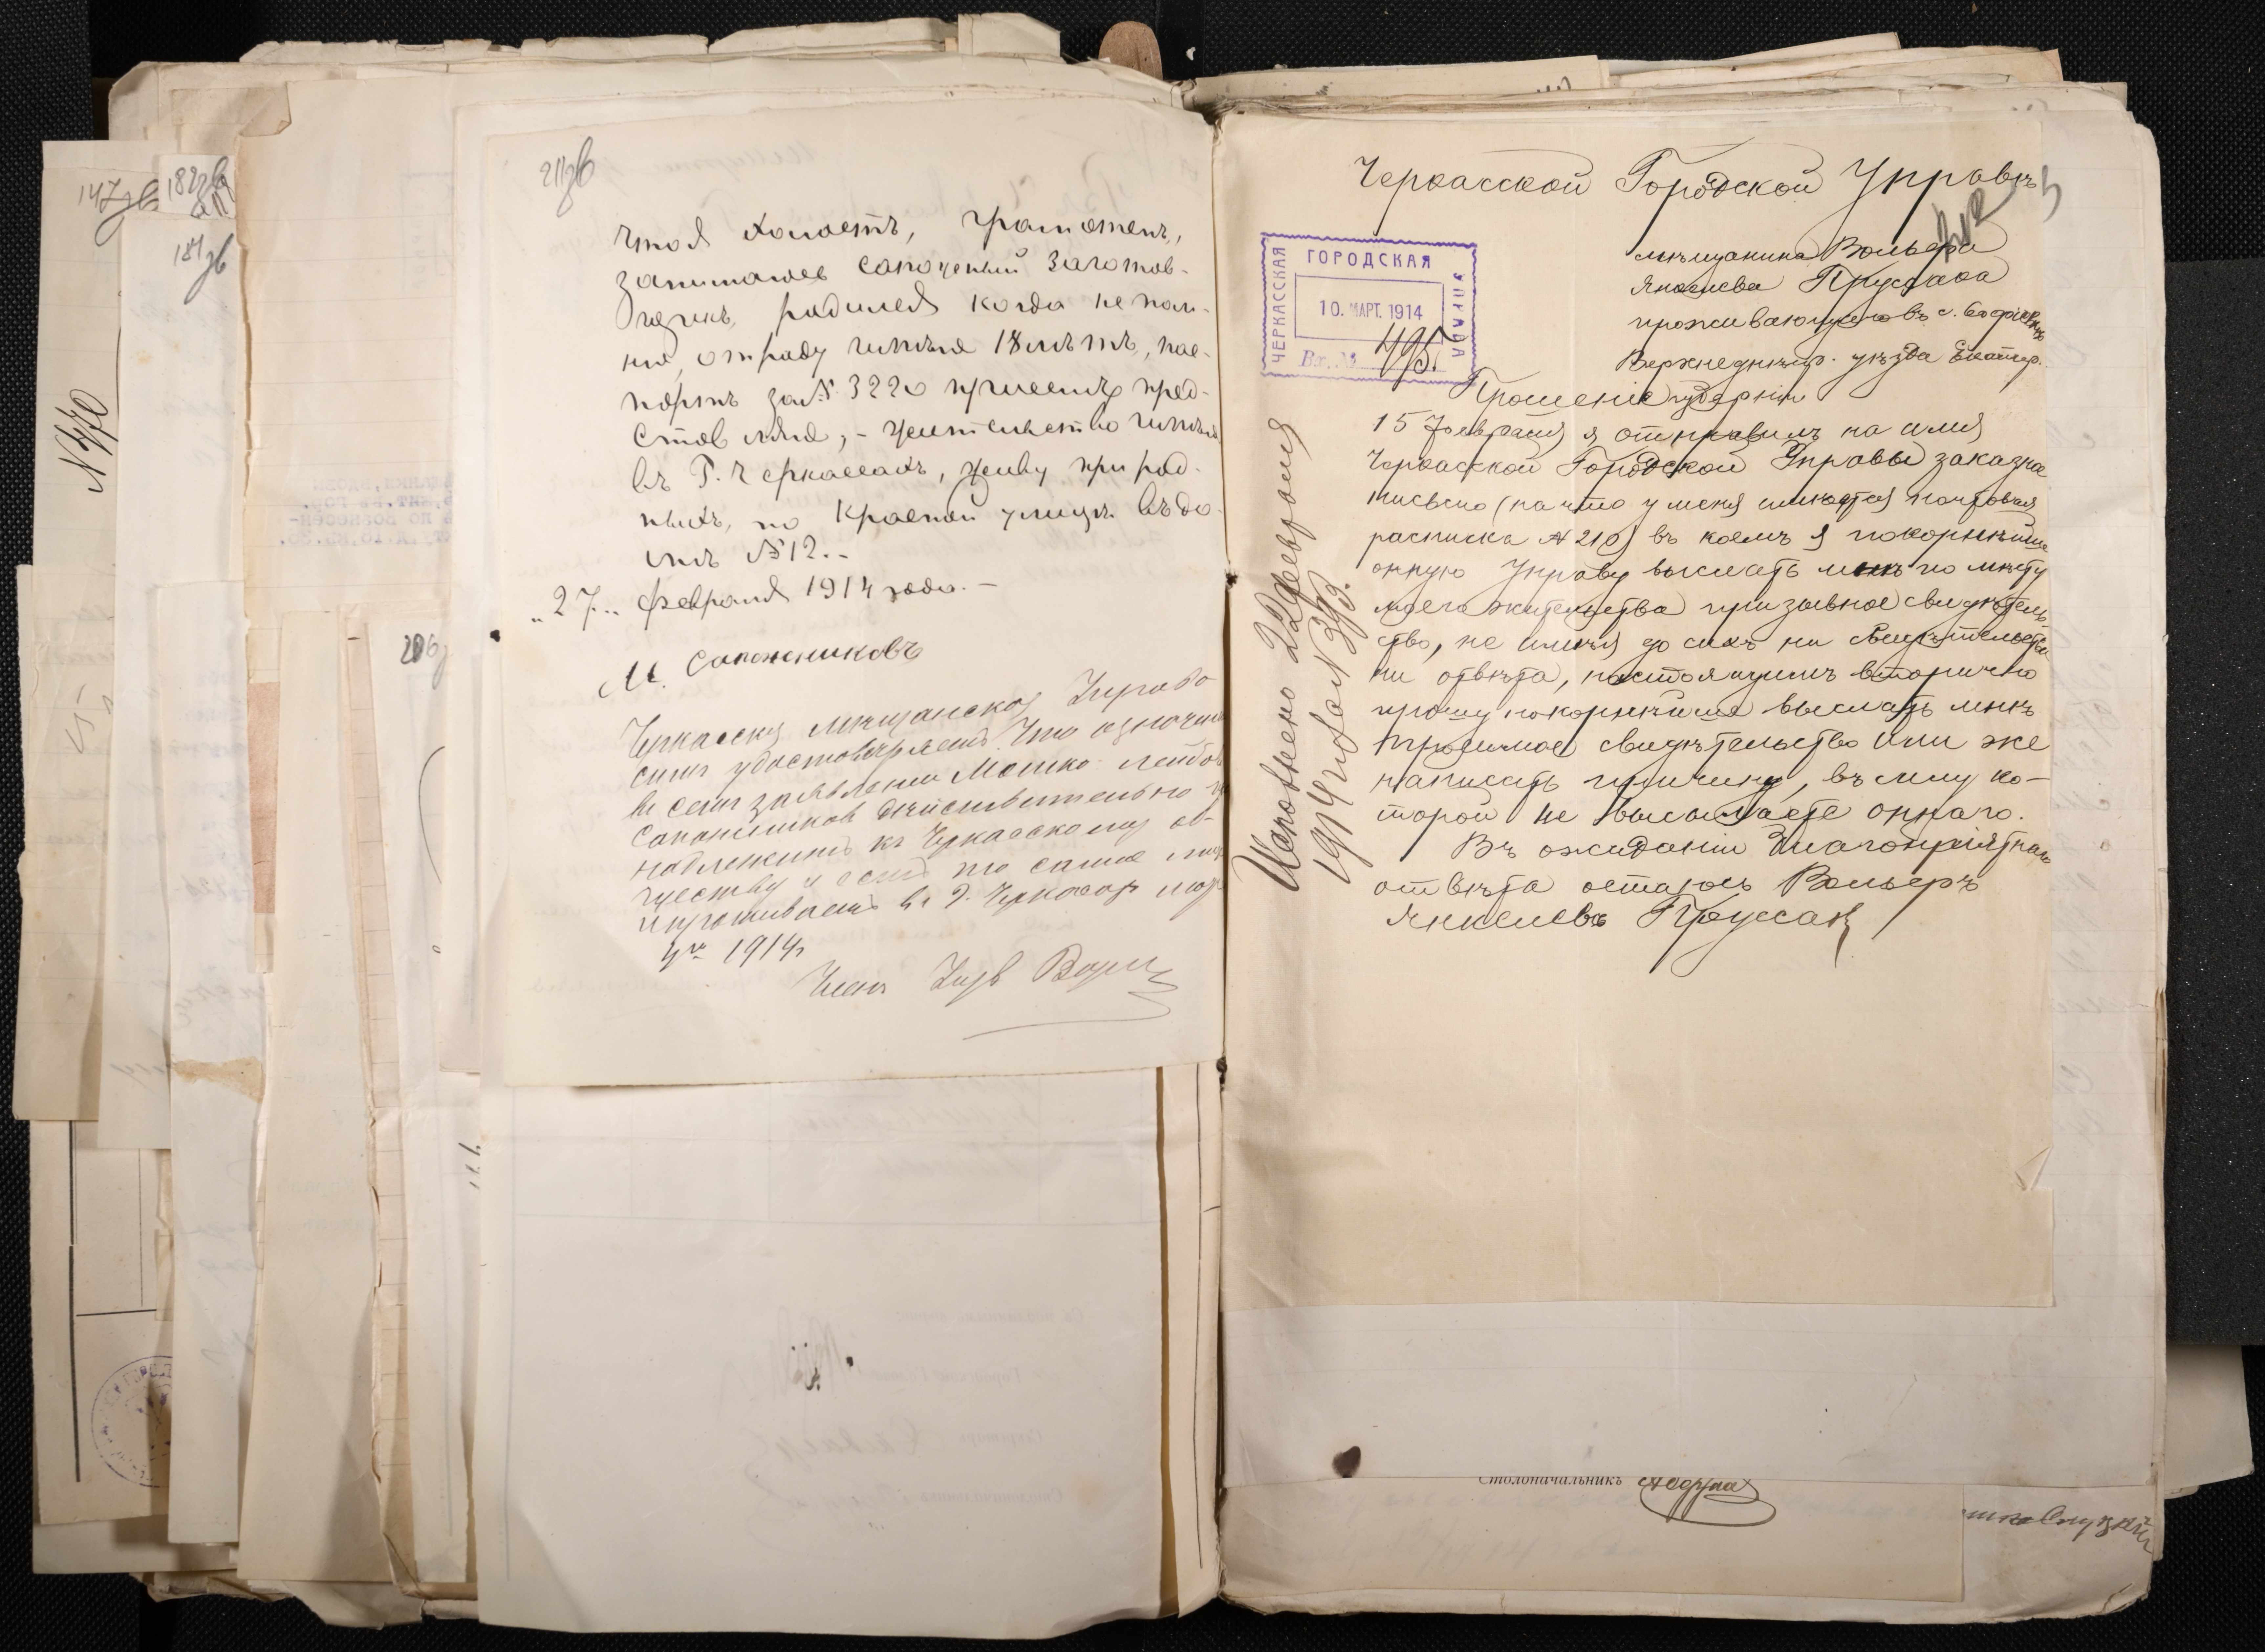 211зв
что я холостъ, грамотенъ,
занимаюсь сапожный заготов-
щикъ, родился когда не пом-
ню, отроду имѣю 18 лѣтъ, пас-
портъ за № 3220 при семъ пред-
ставляю, - жительство имѣю
въ Г. Черкассахъ, живу при род-
ныхъ, по Красной улицѣ въ до-
мѣ № 12. -
„27„ февраля 1914 года. -
М. Сапожниковъ
Черкасская мѣщанская Управа
симъ удостовѣряетъ что означен
въ семъ заявленіи Мошко Лейбов
Сапожников дѣйствительно п
надлежитъ къ Черкасскому об-
ществу и есть то самое лицо
и проживаетъ въ г. Черкассах
1914 г
Член Упр
147зв
182зв
181зв
N 370
206
Черкасской Городской Управѣ
212
мѣщанина Вольфа
Янкелева Пруссака
проживающаго въ с. Софіевкѣ
Верхнеднѣпр. уѣзда Екатер.
губерніи
ЧЕРКАССКАЯ ГОРОДСКАЯ УПРАВА
10. МАРТ. 1914
Вх. № 495
Прошеніе
15 Февраля я отправилъ на имя
Черкасской Городской Управы заказное
письмо (на что у меня имѣется почтовая
расписка № 210) въ коемъ я покорнѣйше
онную Управу выслать мнѣ по мѣсту
моего жительства призывное свидѣтель-
ство, не имѣя до сихъ ни свидѣтельства
ни отвѣта, настоящимъ вторично
прошу покорнѣйше выслать мнѣ
просимое свидѣтельство или же
написать причину, въ силу ко-
торой не высылаете оннаго.
Въ ожиданіи благопріятнаго
отвѣта остаюсь Вольфъ
Янкелевъ Пруссак
Исполнено 22 февраля
1914 года N 379.
Столоначальникъ